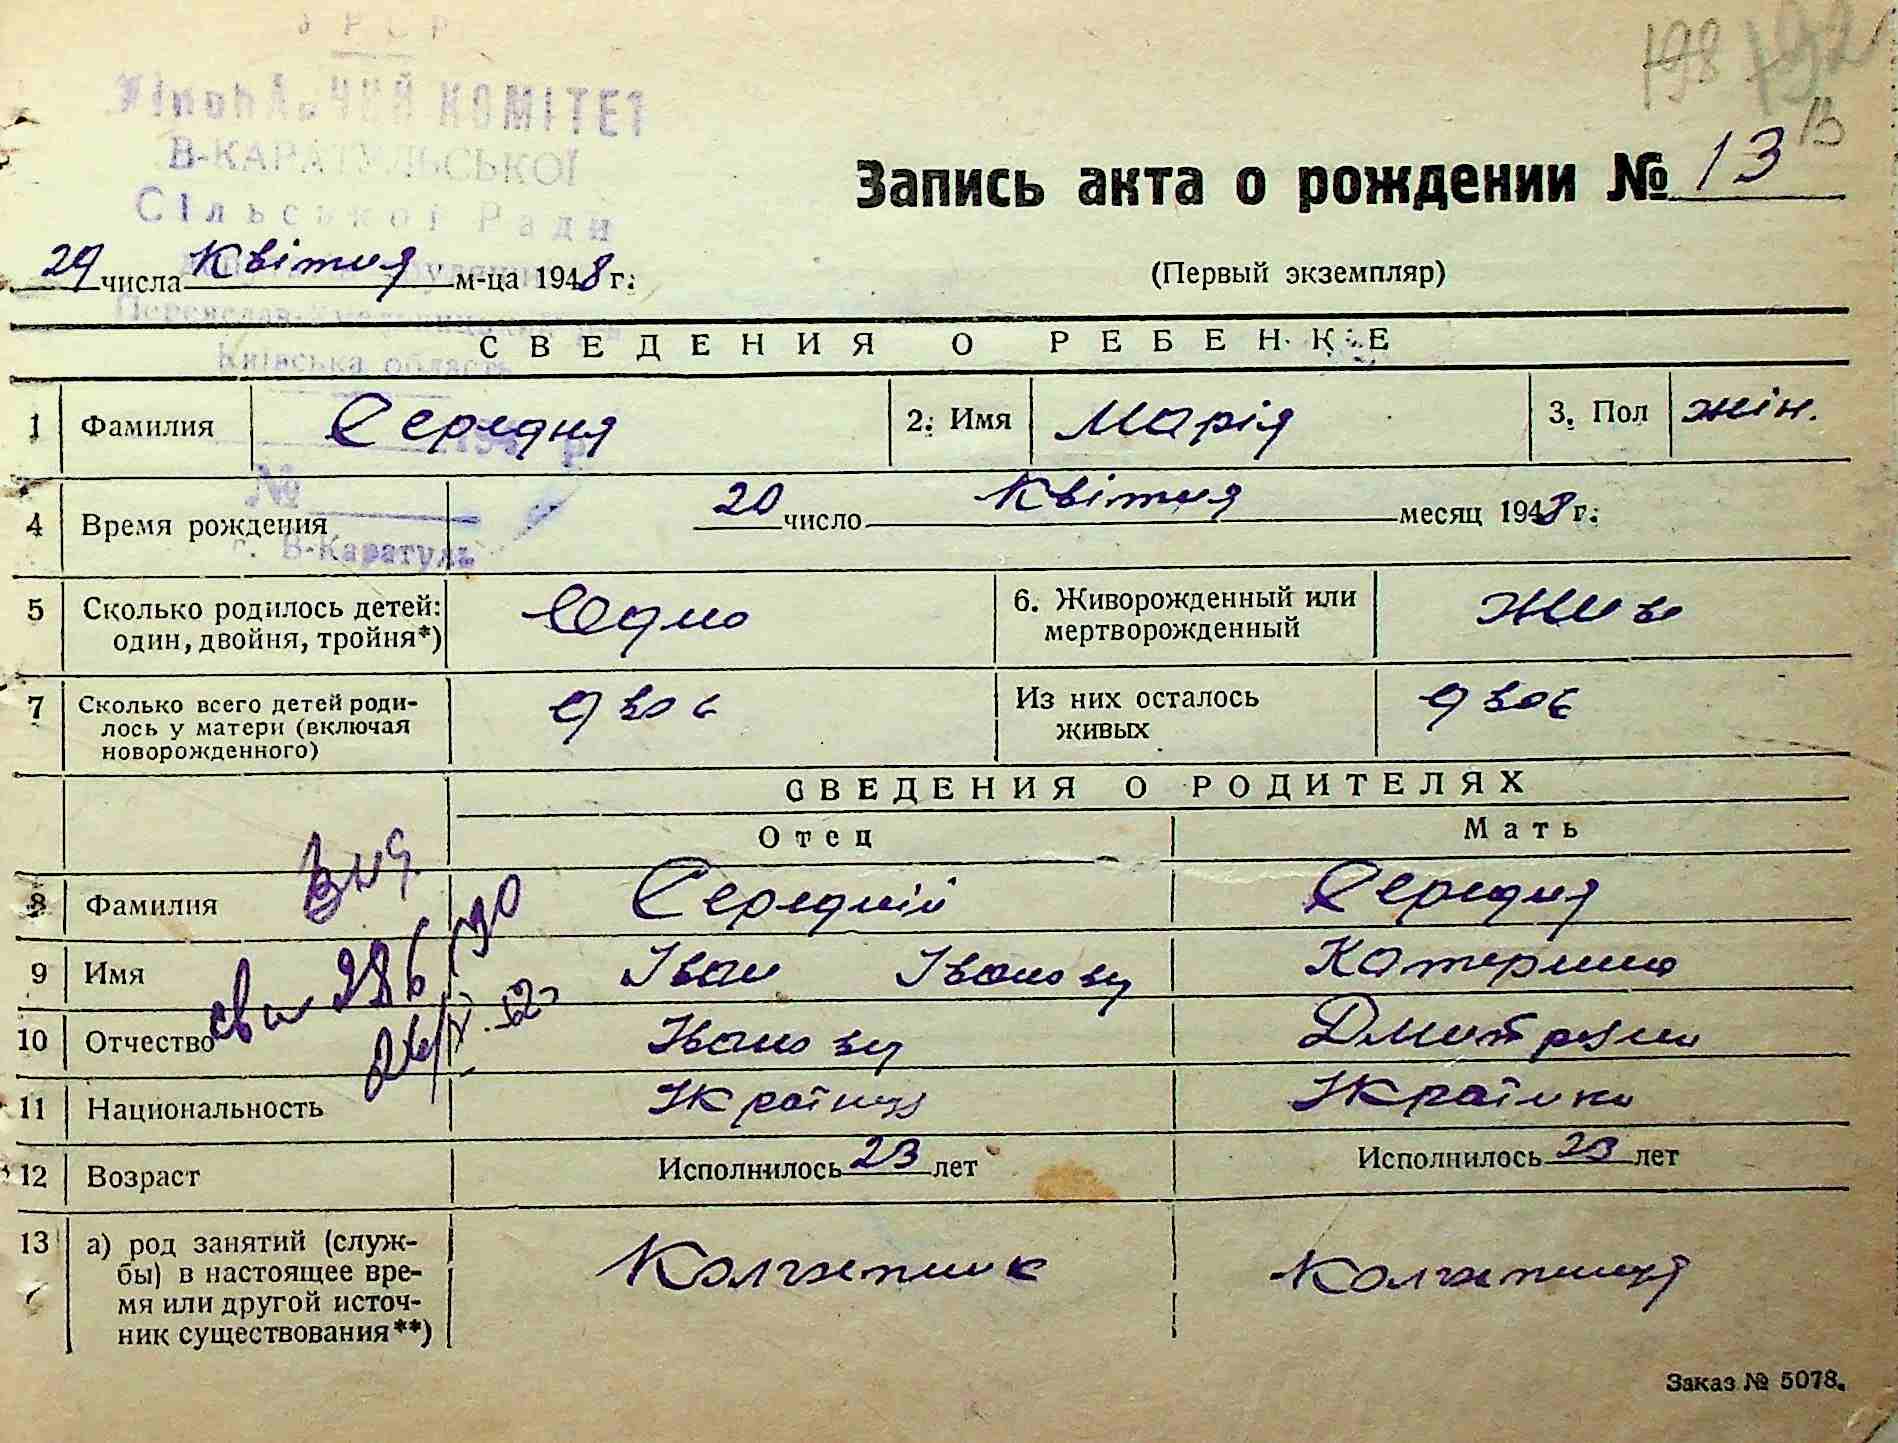 УРСР
ВИКОНАВЧИЙ КОМІТЕТ
В-КАРАТУЛЬСЬКОЇ
Сільської Ради
Переяслав-Хмельницький р-н
Київська область
№
с. В-Каратуль
198 192
13
Запись акта о рождении № 13
29 числа Квітня м-ца 1948 г.
(Первый экземпляр)
СВЕДЕНИЯ О РЕБЕНКЕ
1 Фамилия Середня 2. Имя Марія 3. Пол жін.
4 Время рождения 20 число Квітня месяц 1948 г.
5 Сколько родилось детей: один, двойня, тройня*) Одно 6. Живорожденный или мертворожденный живе
7 Сколько всего детей родилось у матери (включая новорожденного) двоє Из них осталось живых двоє
СВЕДЕНИЯ О РОДИТЕЛЯХ
Отец Мать
8 Фамилия Середній Середня
9 Имя Іван Іванович Катерина
10 Отчество Іванович Дмитрівна
11 Национальность Українец Українка
12 Возраст Исполнилось 23 лет Исполнилось 23 лет
13 а) род занятий (службы) в настоящее время или другой источник существования**) Колгоспник Колгоспниця
Заказ № 5078.